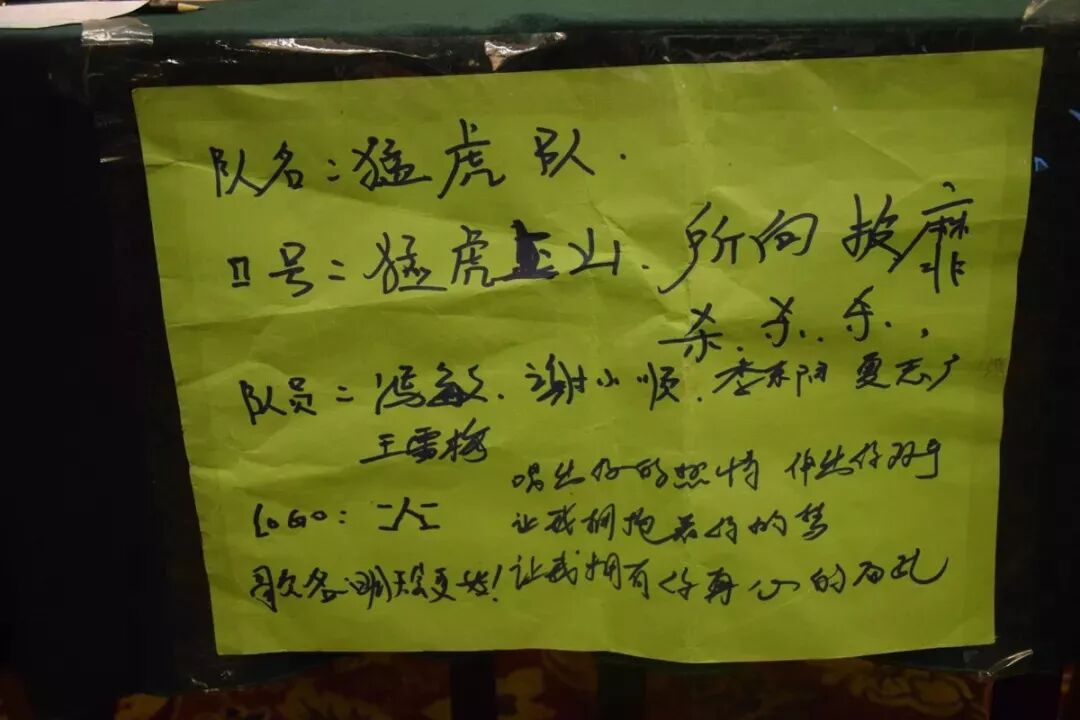 队名：猛虎队.
口号：猛虎上山、所向披靡
杀、杀、杀、,
队员：冯敏、谢小顺、李东阳 夏志广
王雪梅
LOGO: 三人三
唱出你的热情 伸出你双手
让我拥抱着你的梦
歌名 明天会更好! 让我拥有你真心的面孔